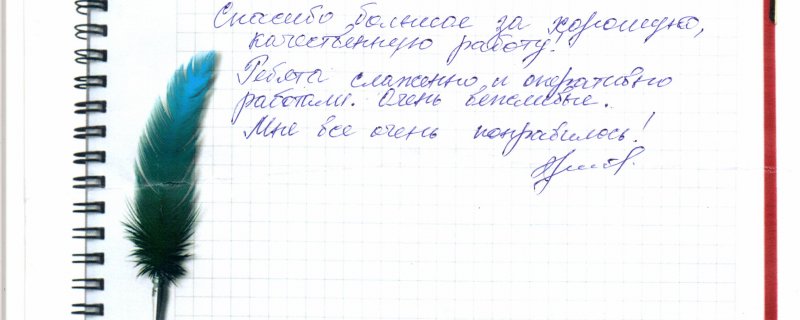 Спасибо большое за хорошую,
качественную работу!
Ребята слаженно и оперативно
работали. Очень вежливые.
Мне все очень понравилось!